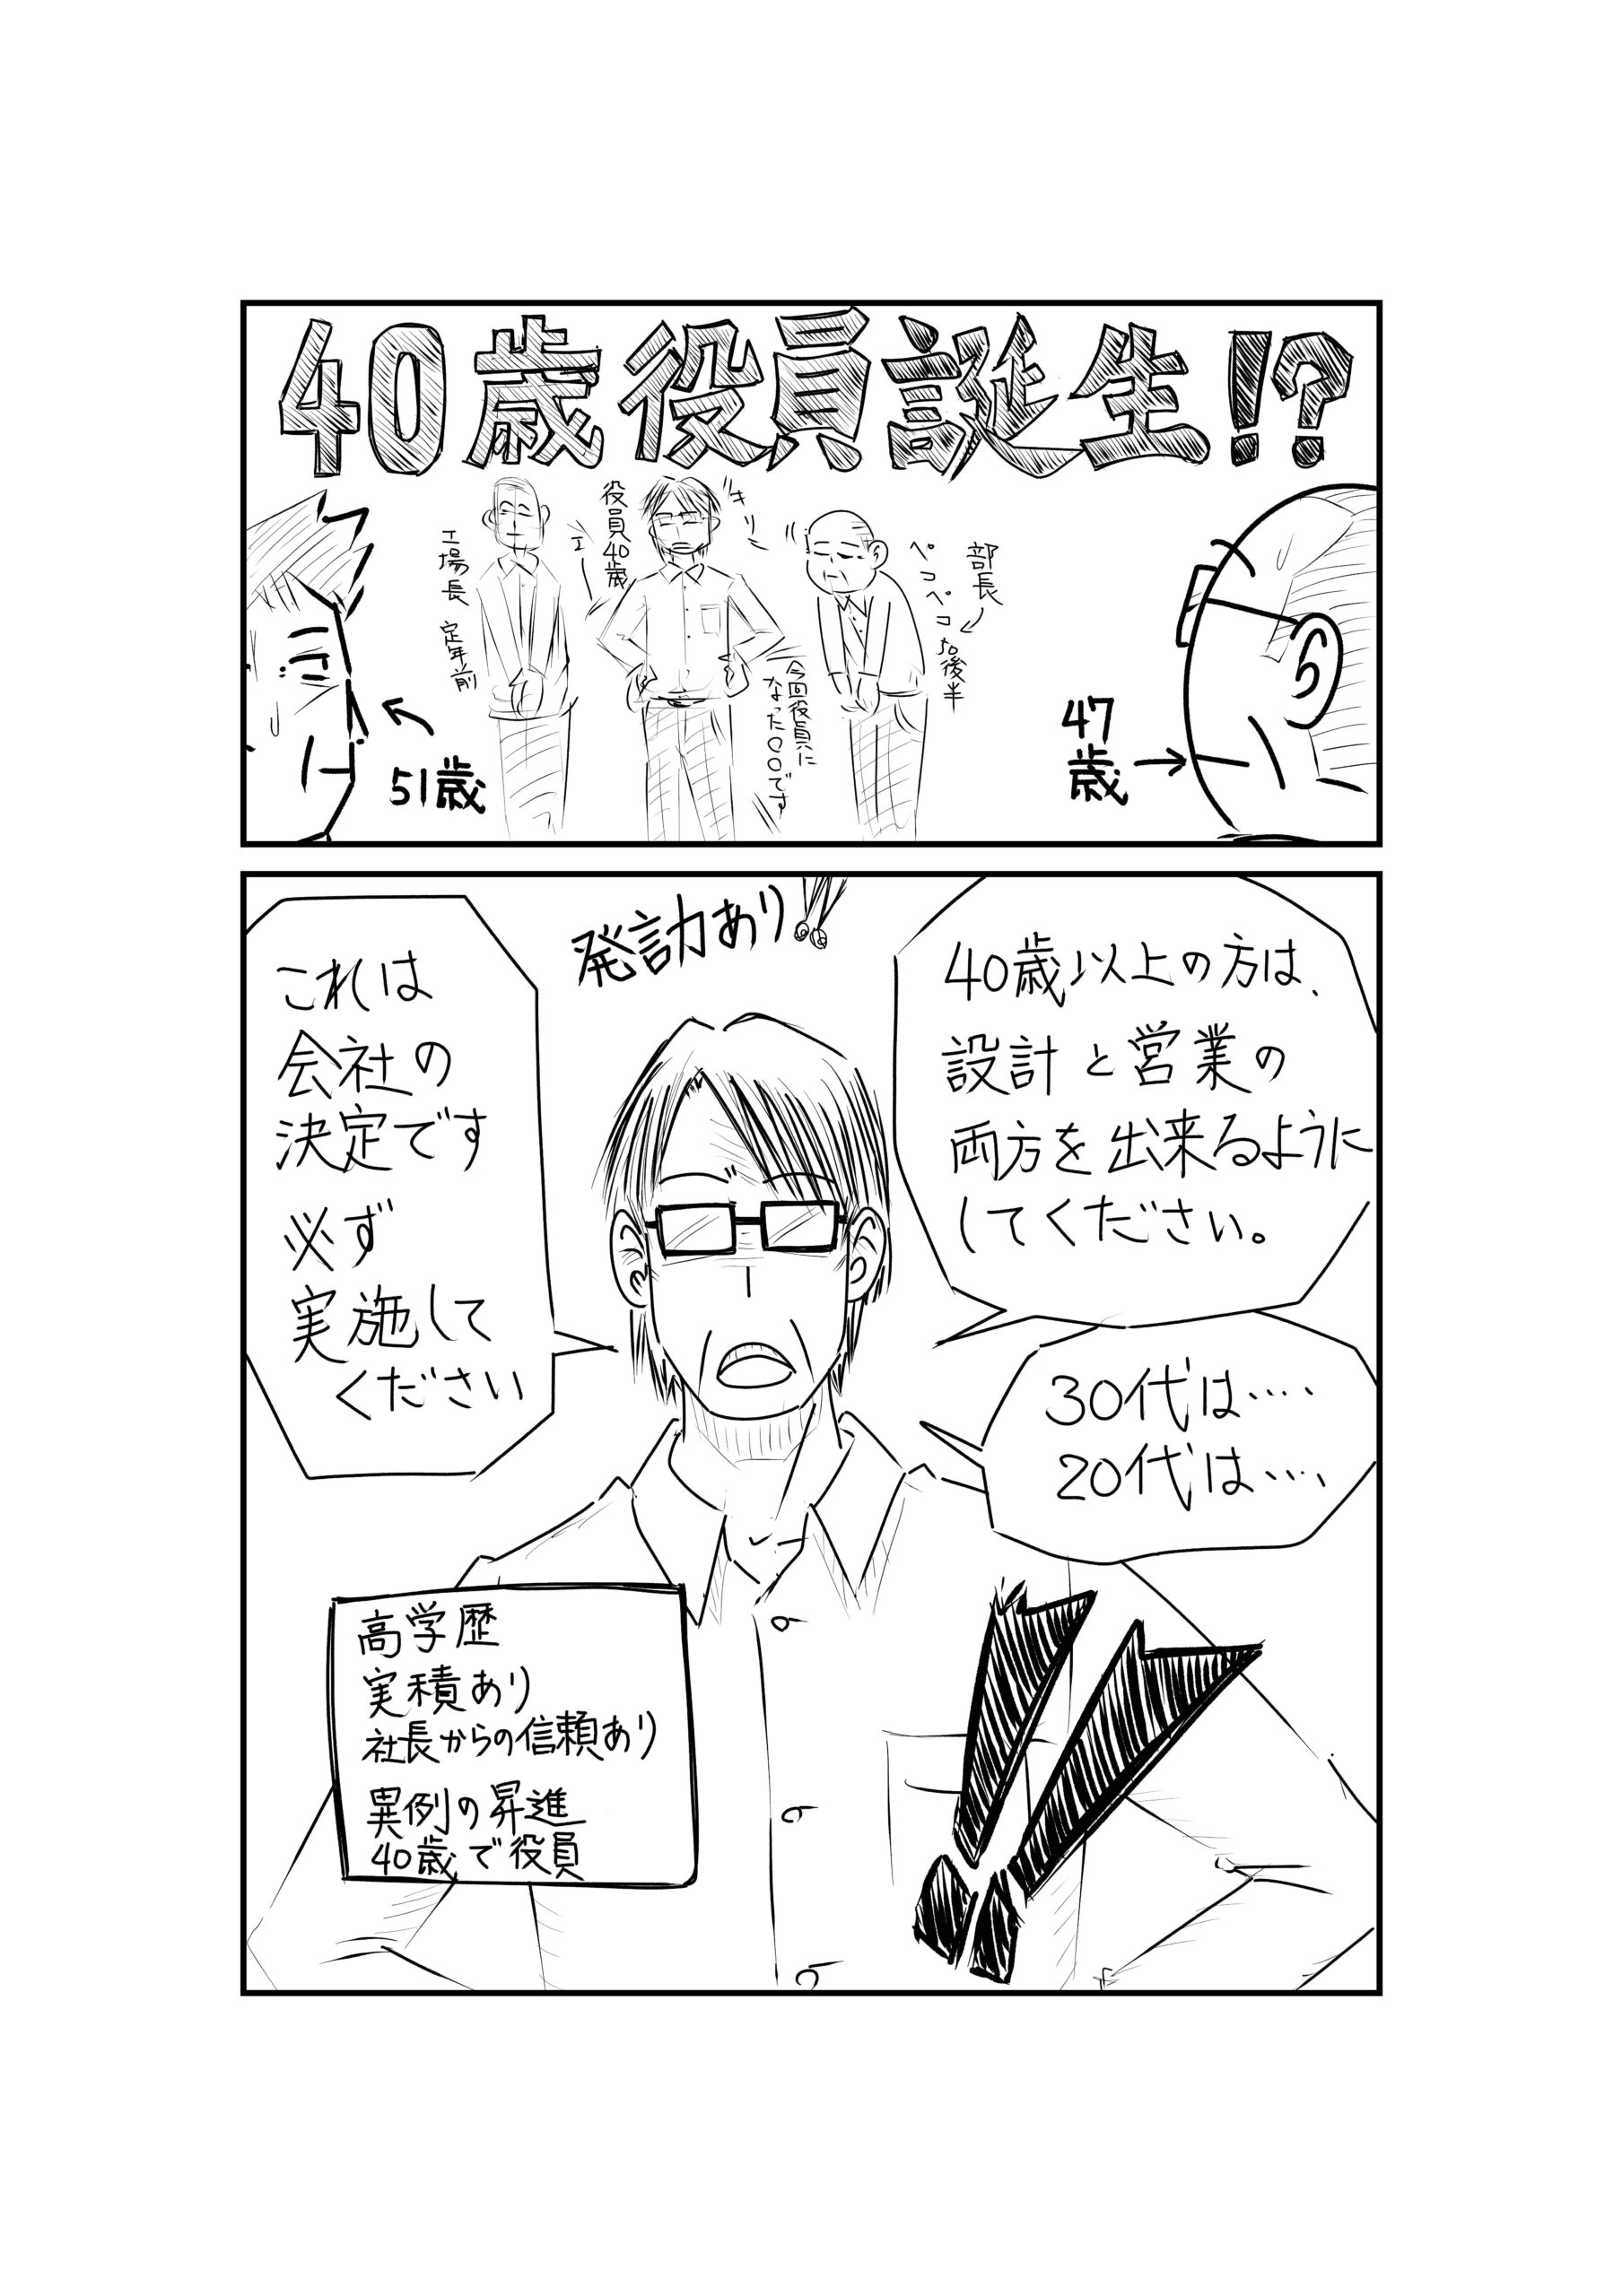 40歳役員誕生!?
部長
ペコペコ
50後半
キリッ
役員40歳
今回役員に
なった〇〇です
工場長 定年前
51歳
47歳
40歳以上の方は、
設計と営業の
両方を出来るように
してください。
30代は‥‥
20代は‥‥
発言力あり!!
これは
会社の
決定です
必ず
実施して
ください
高学歴
実積あり
社長からの信頼あり
異例の昇進
40歳で役員
!!